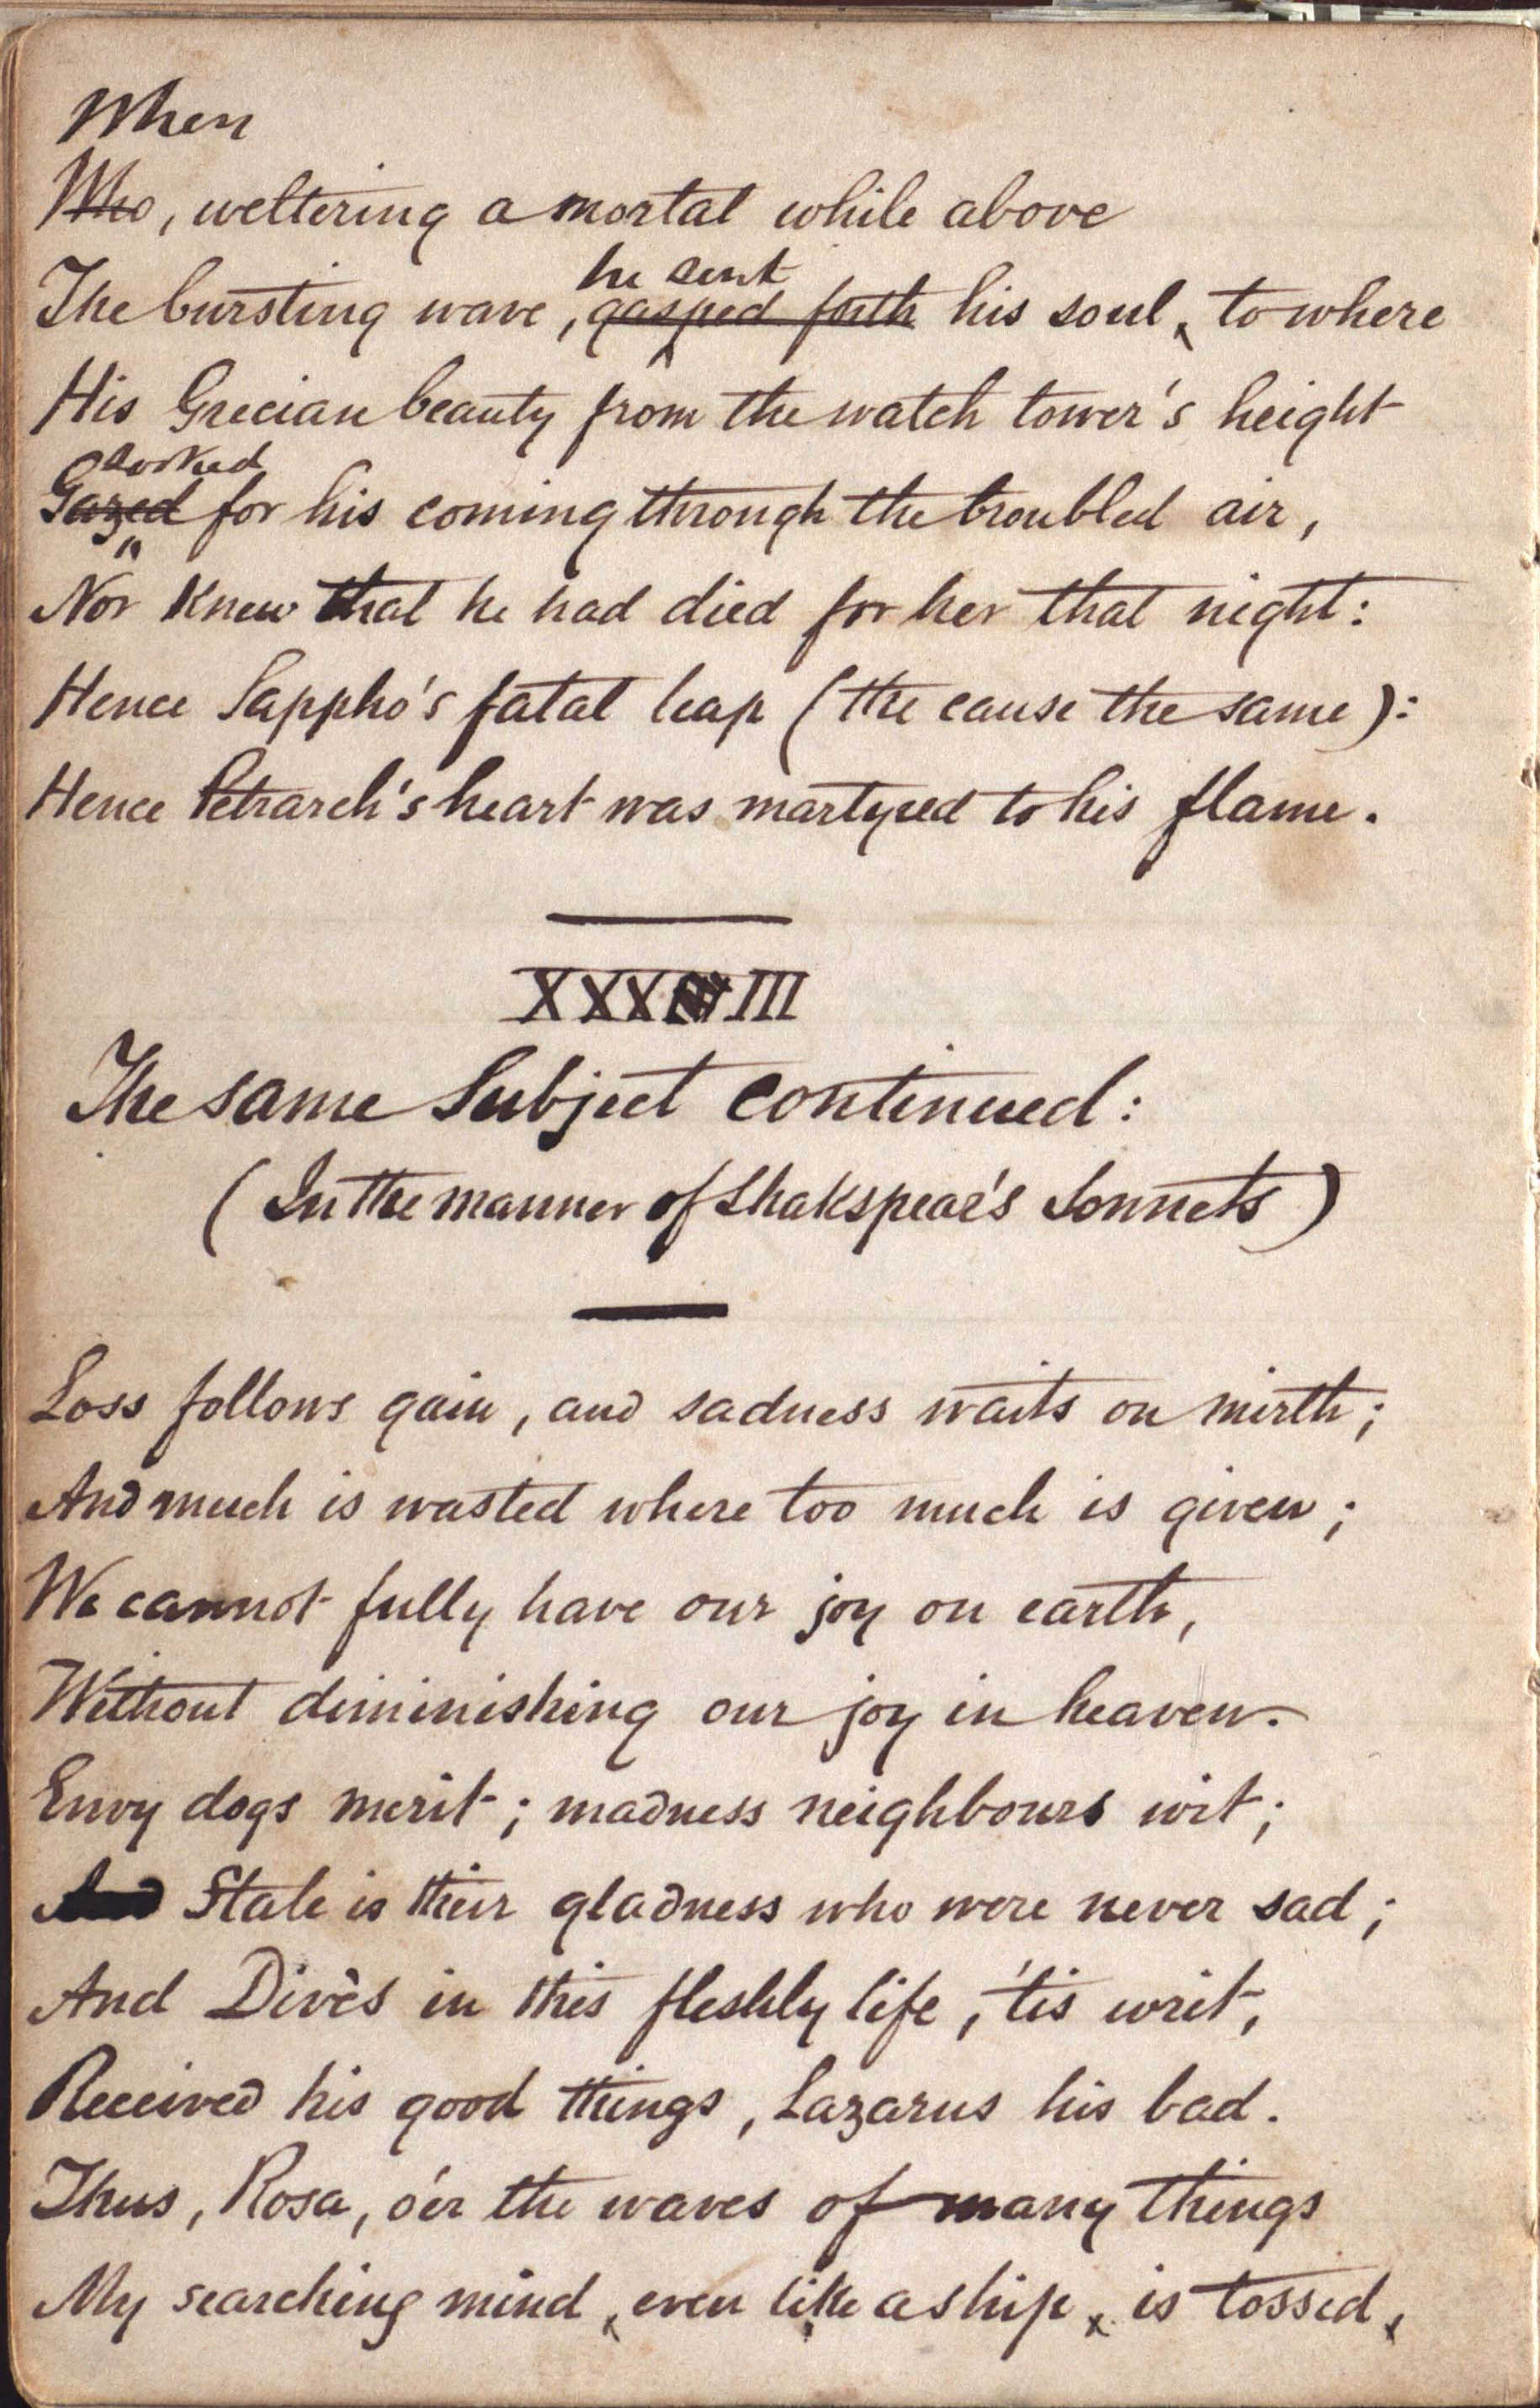 When
Who, weltering a mortal while above
he sent
The bursting wave, gasped forth his soul, to where
His Grecian beauty from the watch tower's height
Looked
Gazed for his coming through the troubled air,
Nor knew that he had died for her that night:
Hence Sappho's fatal leap (the cause the same):
Hence Petrarch's heart was martyred to his flame.
XXXIII
The same Subject continued:
(In the manner of Shakspear's Sonnets)
Loss follows gain, and sadness waits on mirth;
And much is wasted where too much is given;
We cannot fully have our joy on earth,
Without diminishing our joy in heaven.
Envy dogs merit; madness neighbours wit;
And Stale is their gladness who were never sad;
And Divès in this fleshly life, 'tis writ,
Received his good things, Lazarus his bad.
Thus, Rosa, o'er the waves of many things
My searching mind, even like a ship, is tossed,